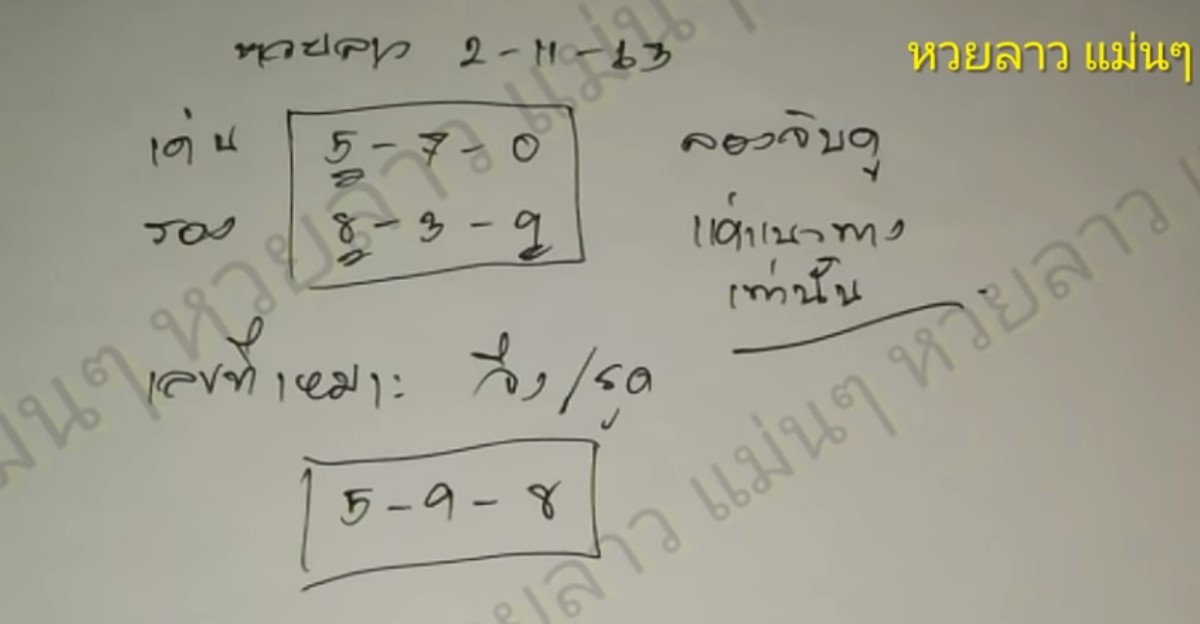 หวยลาว 2-11-63
หวยลาว แม่นๆ
เด่น 5-7-0
รอง 8-3-9
ลองจับดู
แค่แนวทาง
เท่านั้น
เลขที่เหมาะ วิ่ง/รูด
5-9-8
หวยลาว แม่นๆ
หวยลาว แม่นๆ